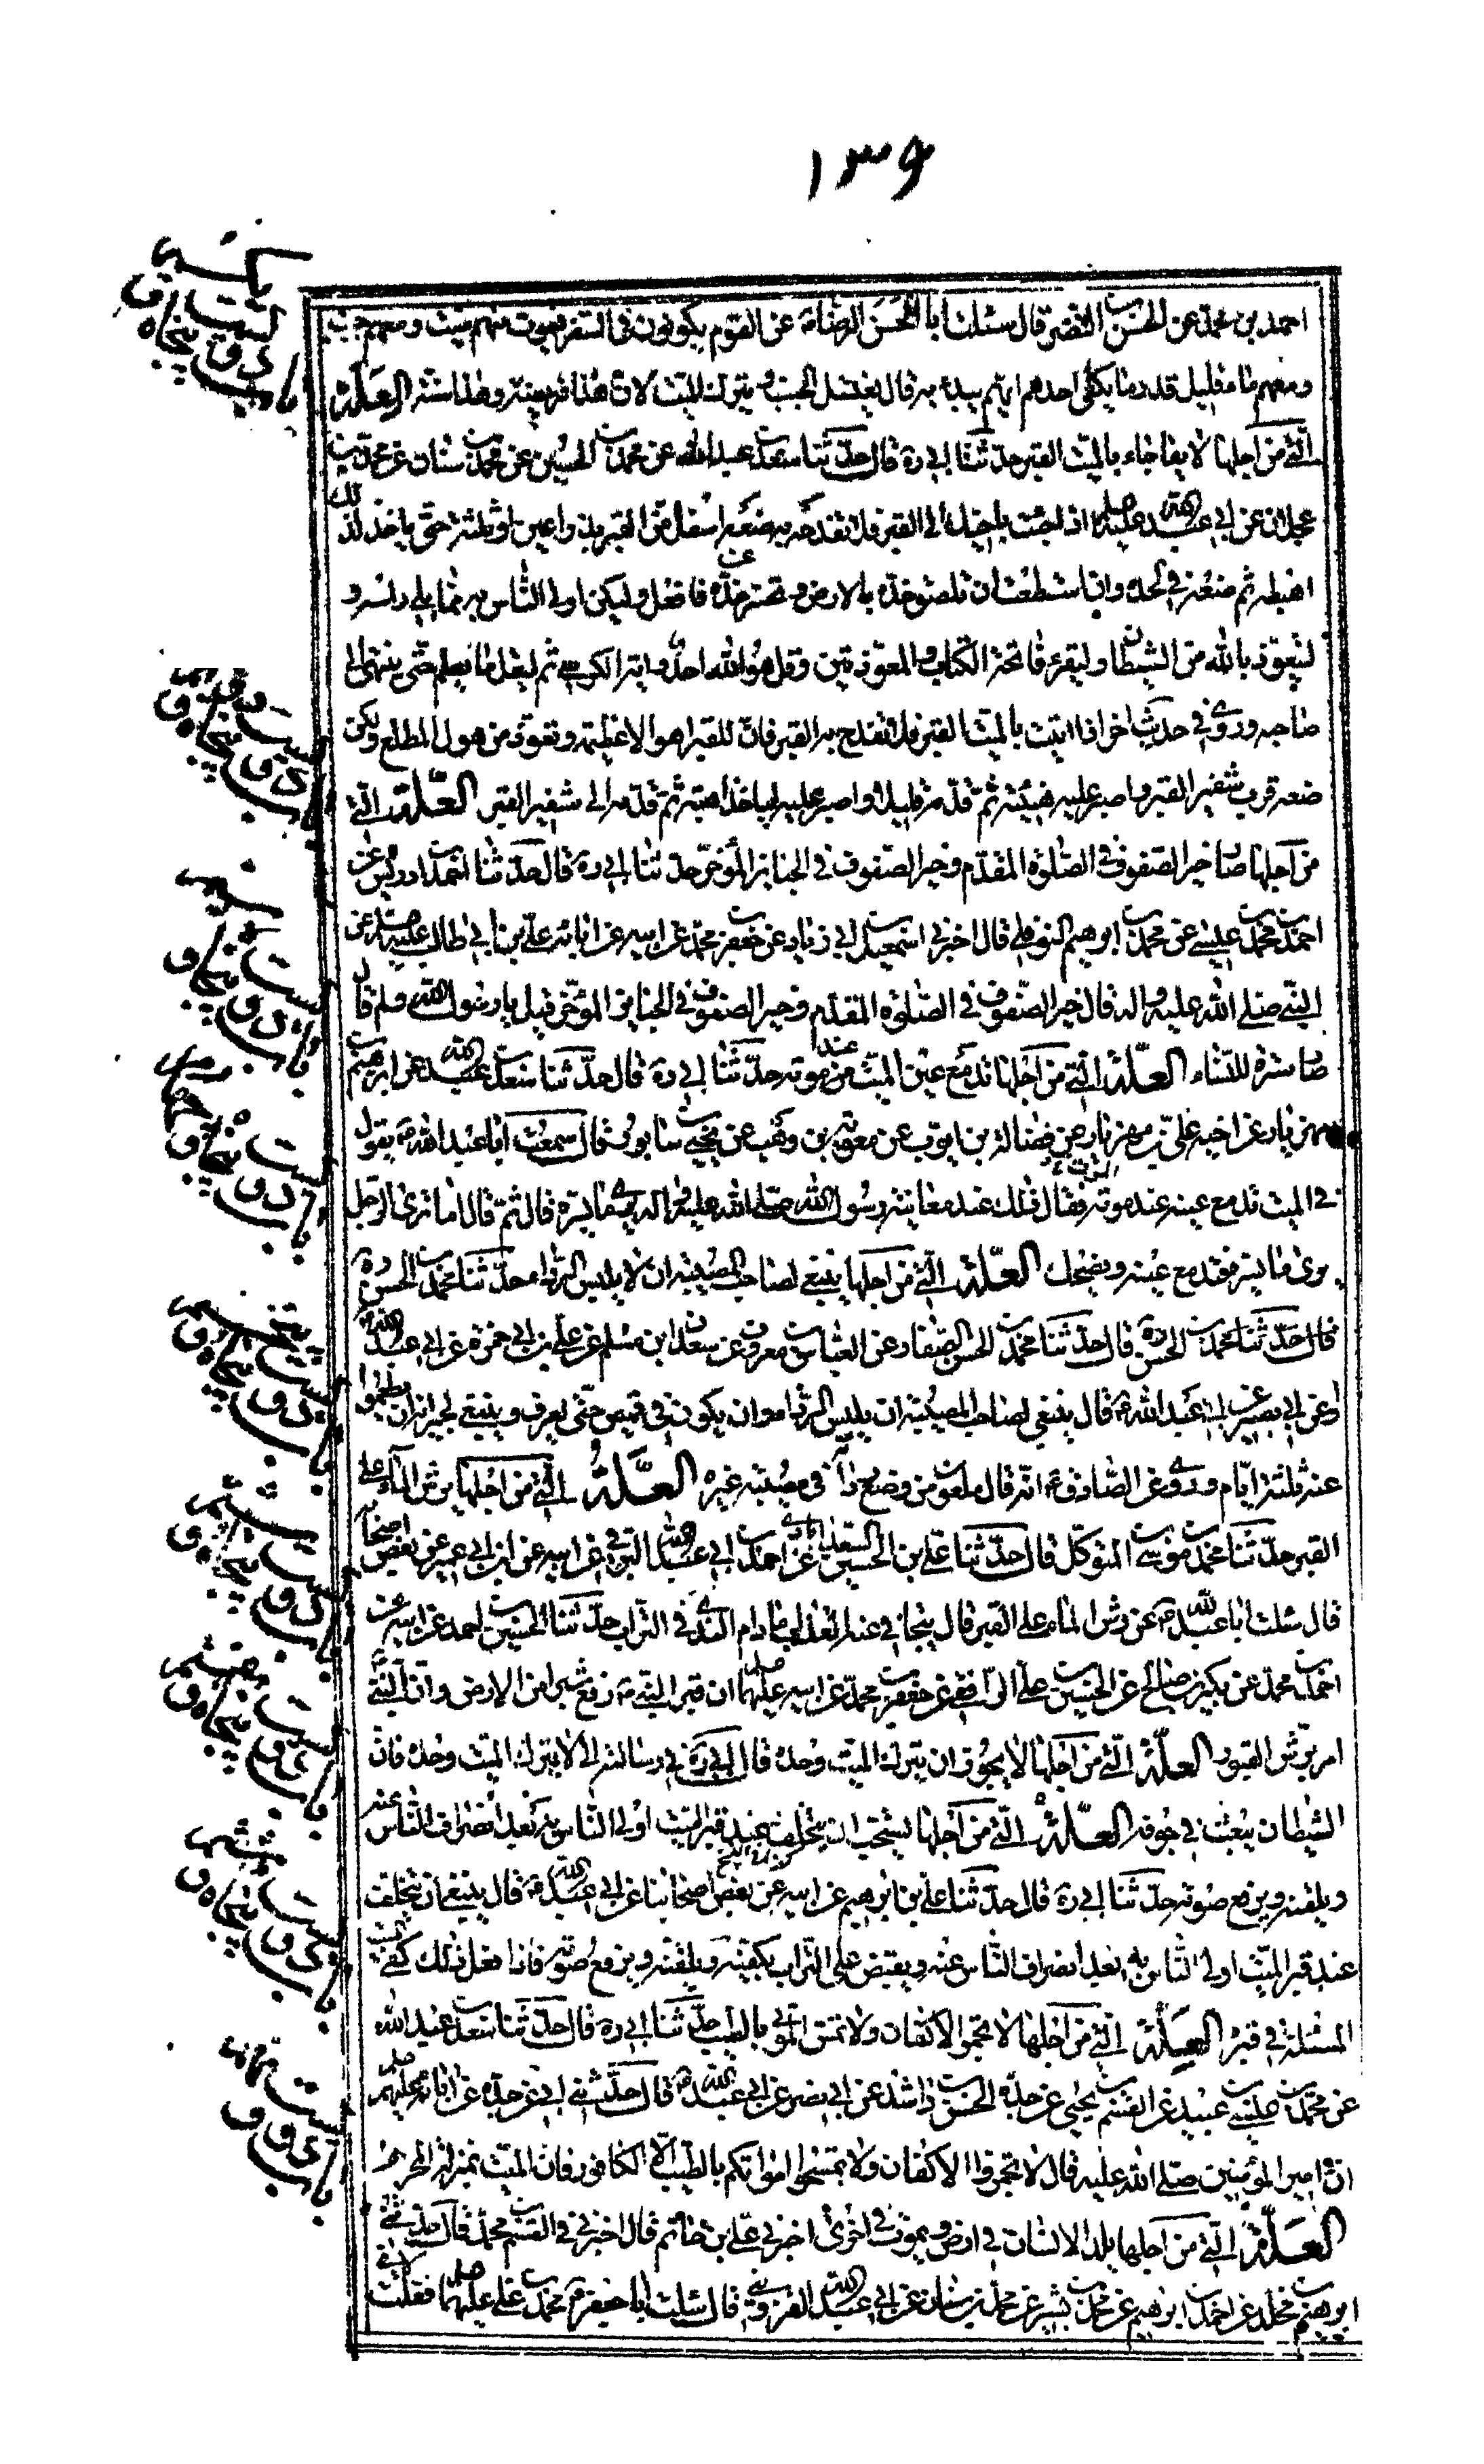 ١٣٩
احمد بن محمد عن الحسن بن النضر قال سئلت ابا الحسن الرضا ع عن القوم يكونون فى السفر فيموت منهم ميت ومعهم جنب
ومعهم ماء قليل قدر ما يكفى احدهم ايهم يبدء به قال يغتسل الجنب ويترك الميت لان هذا فريضة وهذا سنة العلة
التى من اجلها لا يفاجاء بالميت القبر حدثنا ابى ره قال حدثنا سعد بن عبد الله عن محمد بن الحسين عن محمد بن سنان عن محمد بن
عجلان عن ابى عبد الله عليه صلم اذا جئت باخيك الى القبر فلا تفدحه به ضعه اسفل من القبر بذراعين او ثلثة حتى ياخذ لذلك
اهبته ثم ضعه فى لحده وان استطعت ان تلصق خده بالارض وتحسر عن خده فافعل وليكن اولى الناس به مما يلى راسه و
ليتعوذ بالله من الشيطان وليقرء فاتحة الكتاب والمعوذتين وقل هو الله احد واية الكرسى ثم ليقل ما يعلم حتى ينتهى الى
صاحبه وروى فى حديث اخر اذا اتيت بالميت القبر فلا تفدح به القبر فان للقبر اهوالا عظيمة وتعوذ من هول المطلع ولكن
ضعه قرب شفير القبر واصبر عليه هنيئة ثم قدمه قليلا واصبر عليه لياخذ اهبته ثم قدمه الى شفير القبر العلة التى
من اجلها صار خير الصفوف فى الصلوة المقدم وخير الصفوف فى الجنايز المؤخر حدثنا ابى ره قال حدثنا احمد بن ادريس عن
احمد بن محمد بن عيسى عن محمد بن ابرهيم النوفلى قال اخبرنى اسمعيل بن ابى زياد عن جعفر بن محمد عن ابيه عن ابائه عن على بن ابى طالب عليه صلم عن
النبى صلى الله عليه واله قال خير الصفوف فى الصلوة المقدم وخير الصفوف فى الجنايز المؤخر قيل يا رسول الله ولم قال
صار سترة للنساء العلة التى من اجلها تدمع عين الميت عند موته حدثنا ابى ره قال حدثنا سعد بن عبد الله عن ابرهيم بن
مهزيار عن اخيه على بن مهزيار عن فضالة بن ايوب عن معوية بن وهب عن يحيى بن سابور قال سمعت ابا عبد الله ع يقول
فى الميت تدمع عينه عند موته فقال ذلك عند معاينة رسول الله صلى الله عليه واله يرى ما يسره قال ثم قال اما ترى الرجل
يرى ما يسره فتدمع عينه ويضحك العلة التى من اجلها ينبغى لصاحب المصيبة ان لا يلبس الرداء حدثنا محمد بن الحسن ره
قال حدثنا محمد بن الحسن ره قال حدثنا محمد بن الحسن الصفار عن العباس بن معروف عن سعدان ابن مسلم عن على بن ابى حمزة عن ابى عبد الله ع
او عن ابى بصير عن ابى عبد الله ع قال ينبغى لصاحب المصيبة ان لا يلبس الرداء وان يكون فى قميص حتى يعرف وينبغى لجيرانه ان يطعموا
عنه ثلثة ايام وروى عن الصادق ع انه قال ملعون من وضع رداه فى مصيبة غيره العلة التى من اجلها يرش الماء على
القبر حدثنا محمد بن موسى بن المتوكل قال حدثنا على بن الحسين السعدابادى عن احمد بن ابى عبد الله البرقى عن ابيه عن ابن ابى عمير عن بعض اصحابه
قال سئلت ابا عبد الله ع عن رش الماء على القبر قال يتجافى عنه العذاب ما دام الندى فى التراب حدثنا الحسين بن احمد عن ابيه عن
احمد بن محمد عن بكر بن صالح عن الحسين بن على الرافقى عن جعفر بن محمد عن ابيه عليهما صلم ان قبر النبى ص رفع شبرا من الارض وان النبى ص
امر برش القبور العلة التى من اجلها لا يجوز ان يترك الميت وحده قال ابى ره فى رسالته الى لا يترك الميت وحده فان
الشيطان يعبث فى جوفه العلة التى من اجلها يستحب ان يتخلف عند قبر الميت اولى الناس به بعد انصراف الناس عنه
ويلقنه ويرفع صوته حدثنا ابى ره قال حدثنا على بن ابرهيم عن ابيه عن بعض اصحابنا عن ابى عبد الله ع قال ينبغى ان يتخلف
عند قبر الميت اولى الناس به بعد انصراف الناس عنه ويقبض على التراب بكفيه ويلقنه ويرفع صوته فاذا فعل ذلك كفى الميت
المسئلة فى قبره العلة التى من اجلها لا تجمر الاكفان ولا تمس الموتى بالطيب حدثنا ابى ره قال حدثنا سعد بن عبد الله
عن محمد بن عيسى بن عبيد عن القسم بن يحيى عن جده الحسن بن راشد عن ابى بصير عن ابى عبد الله ع قال حدثنى ابى عن جده عن ابائه عليهم صلم
ان امير المؤمنين صلى الله عليه قال لا تجمروا الاكفان ولا تمسحوا امواتكم بالطيب الا الكافور فان الميت بمنزلة المحرم
العلة التى من اجلها يلد الانسان فى ارض ويموت فى اخرى اخبرنى على بن حاتم قال اخبرنى القسم بن محمد قال حدثنى
ابرهيم بن مخلد عن احمد بن ابرهيم عن محمد بن بشير عن محمد بن سنان عن ابى عبد الله القزوينى قال سئلت ابا جعفر محمد بن على عليهما صلم فقلت لاى
باب دويست و پنجاه و يكم
باب دويست و پنجاه و دوم
باب دويست و پنجاه و سيم
باب دويست و پنجاه و چهارم
باب دويست و پنجاه و پنجم
باب دويست و پنجاه و ششم
باب دويست و پنجاه و هفتم
باب دويست و پنجاه و هشتم